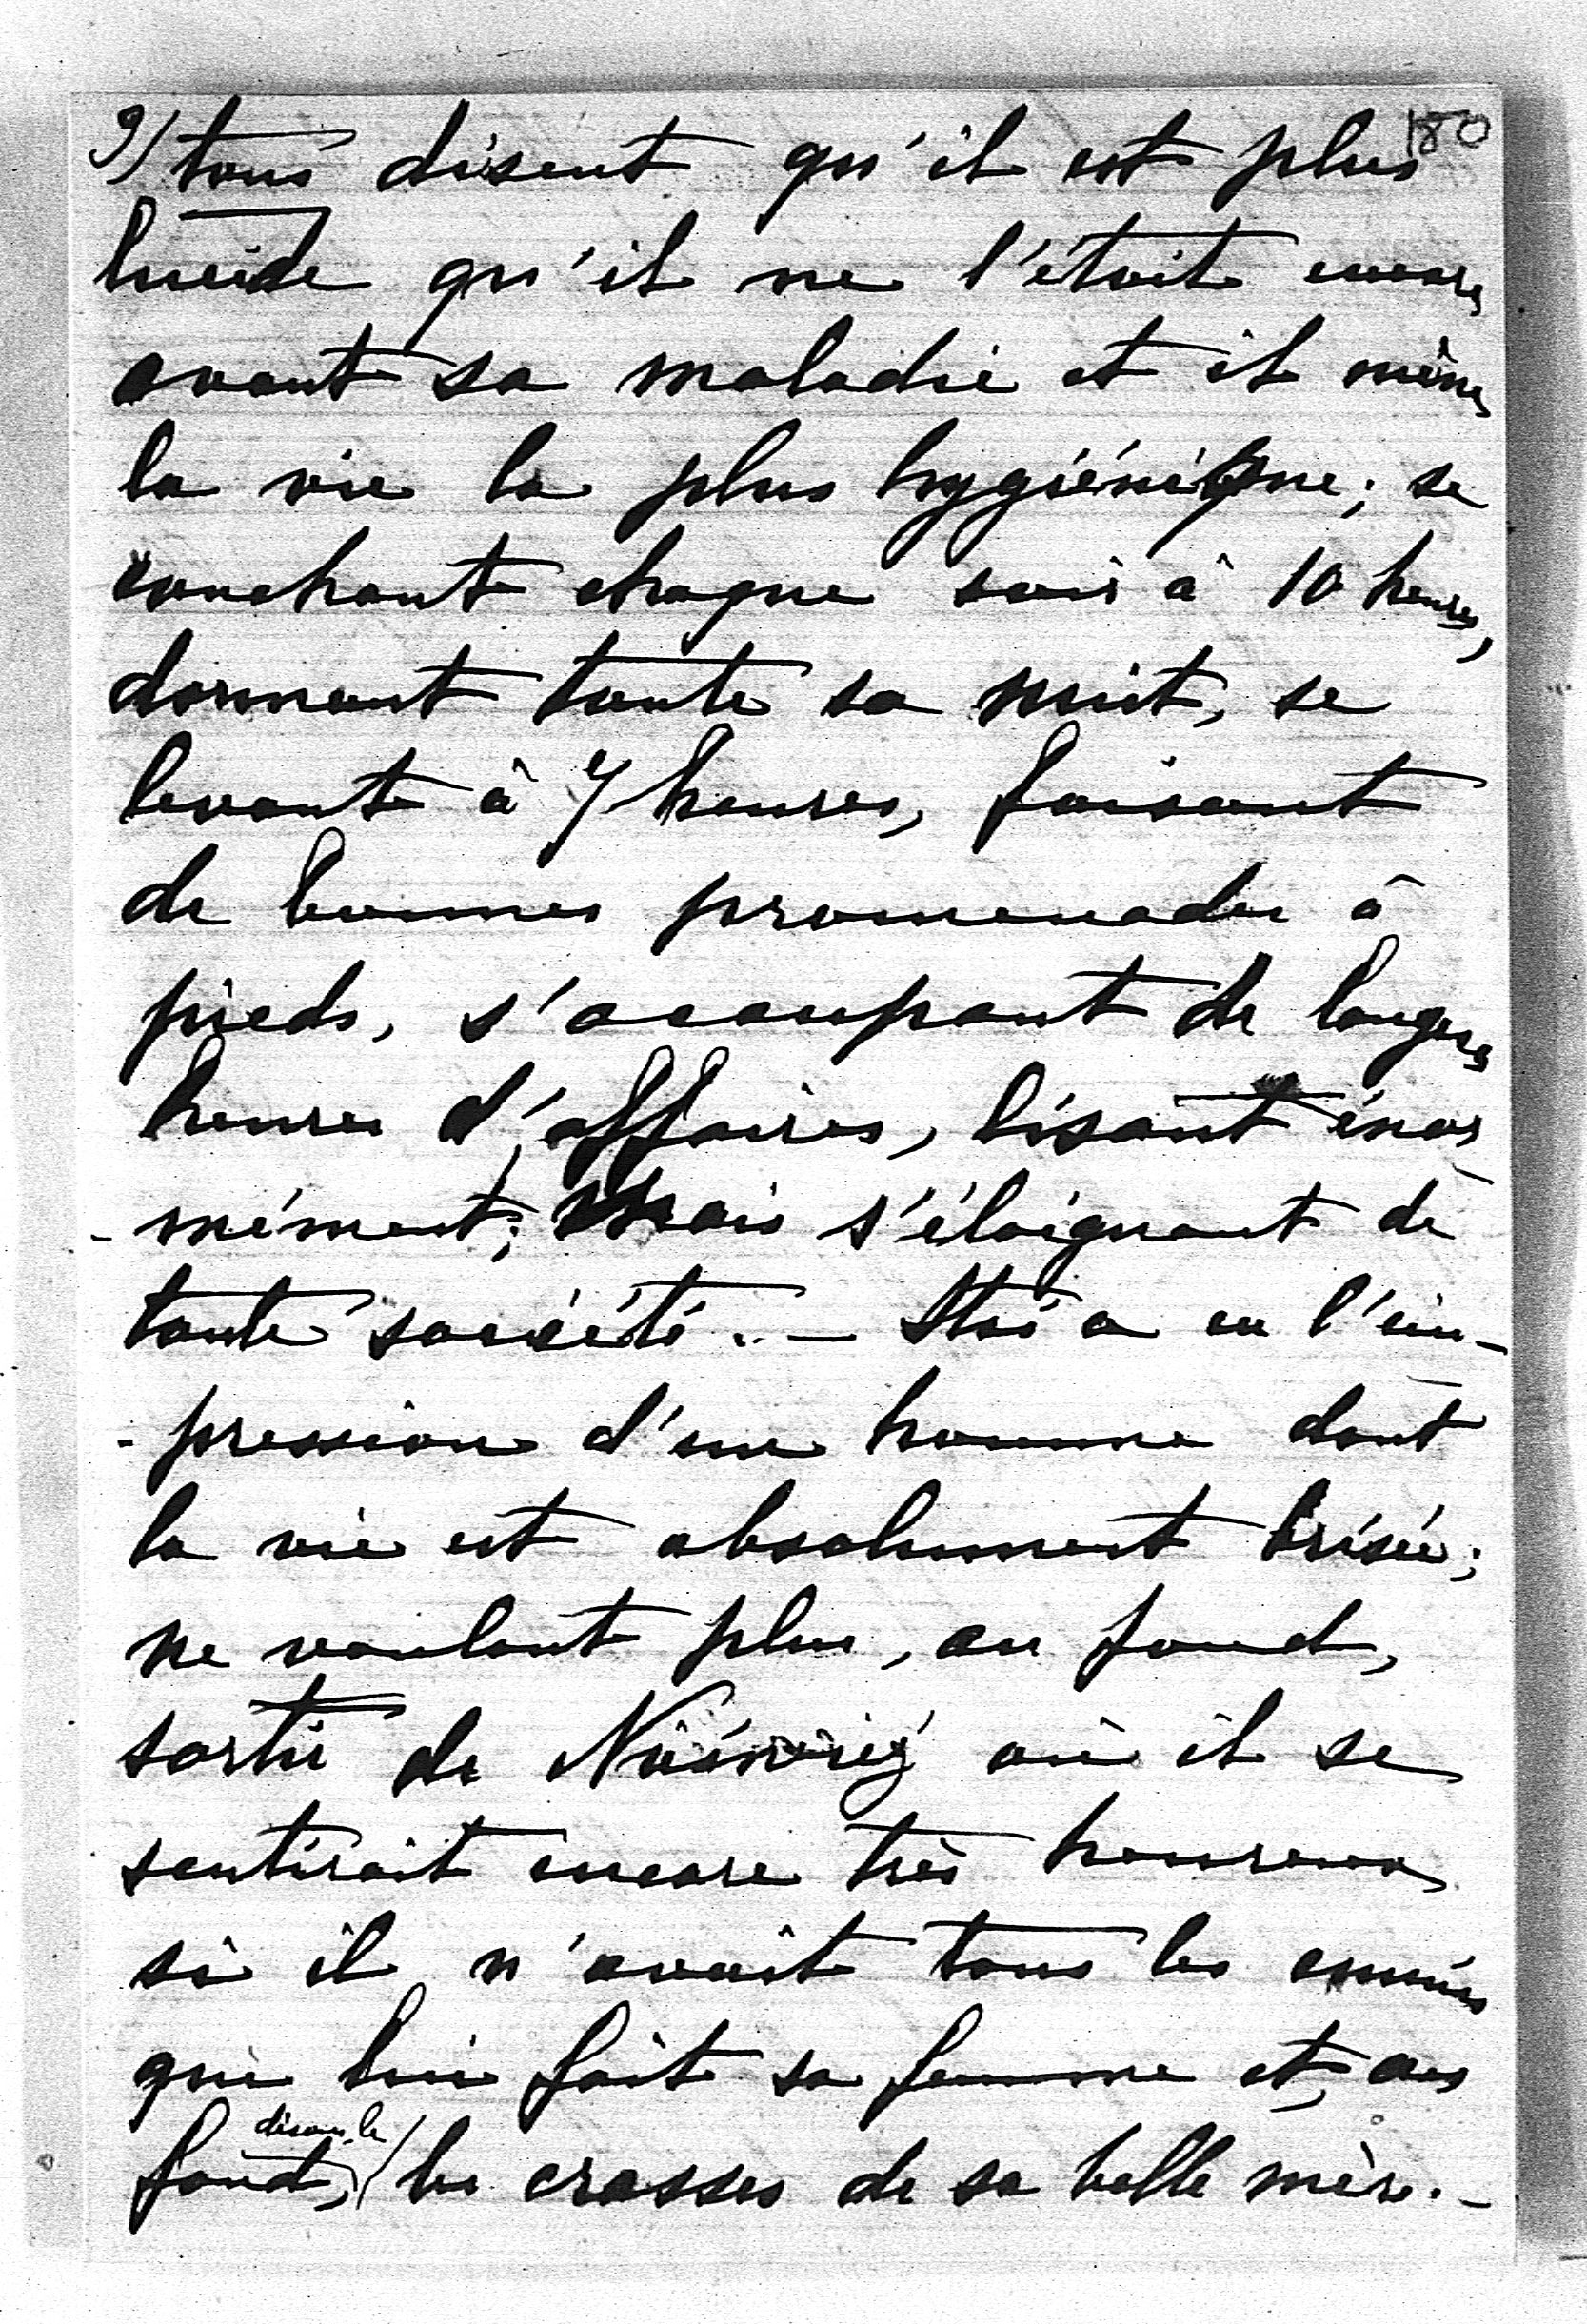 9/ tous disent qu'il est plus 180
lucide qu'il ne l'était encore
avant sa maladie et il mène
la vie la plus hygiénique; se
couchant chaque soir à 10 heures,
dormant toute sa nuit, se
levant à 7 heures, faisant
de bonnes promenades à
pieds, s'occupant de longues
heures d'affaires, lisant énor-
-mément; mais s'éloignant de
toute société. — Moi a eu l'im-
-pression d'un homme dont
la vie est absolument brisée;
ne voulant plus, au fond,
sortir de où il se
sentirait encore très heureux
si il n'avait tous les ennuis
que lui fait sa femme et, au
disons-le
fond, / les crasses de sa belle mère. -